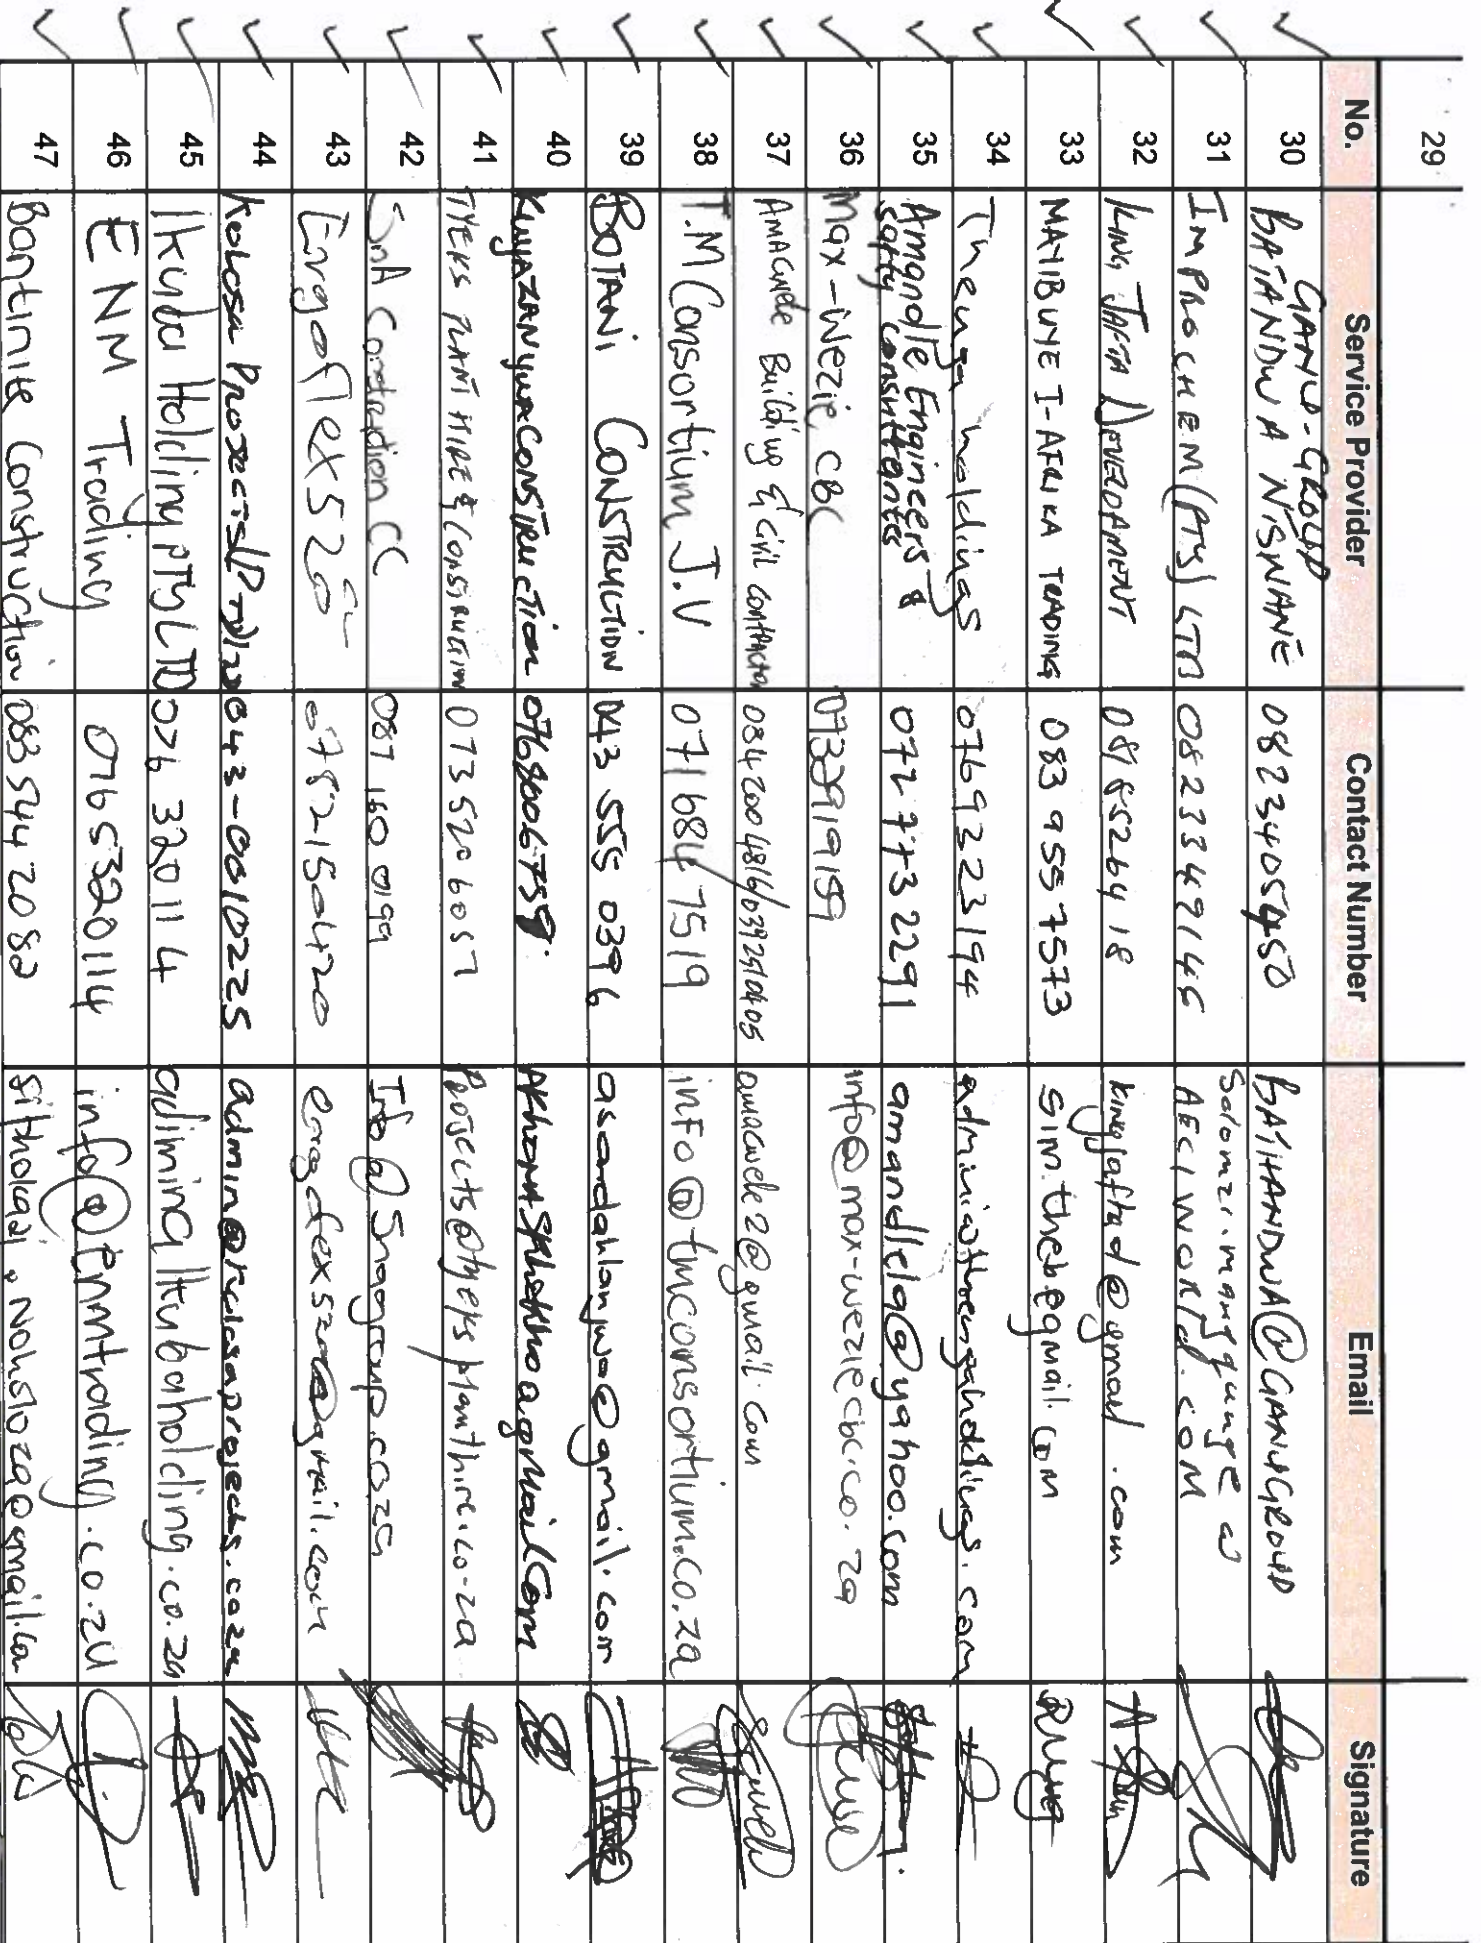 29
No. Service Provider Contact Number Email Signature
30 GANU-GROUP
BATANDWA NTSWANE 0823405450 BATHANDWA@GANUGROUP
31 IMPROCHEM (PTY) LTD 0823349145 AECI WORLD.COM
32 KING JAFTA DEVELOPMENT kingjaftad@gmail.com
33 MAYIBUYE I-AFRIKA TRADING 083 955 7573 sim.thebe@gmail.com
34 Thenga holdings 0769323194
35 Amandle Engineers &
Safty Consultantes 072 773 2291 amandlela@yahoo.com
36 Max-Wezie CBC 0733919159 info@max-weziecbc.co.za
37 Amacwele Building & Civil Contractor 0842004816/0392510405 amacwele2@gmail.com
38 T.M Consortium J.V 071 684 7519 info@tmconsortium.co.za
39 BOTANI CONSTRUCTION 043 555 0396 asandahlanjwa@gmail.com
40 Construction
41 TYEKS PLANT HIRE & CONSTRUCTION 073 520 6057 Projects@tyeksplanthire.co-za
42 SnA Construction CC 087 160 0199 Info@Snagroup.co.za
43 Ergoflex520 0782150420
44 Projects 043-0010225
45 Ikuba Holding PTY LTD 076 3320114
46 ENM Trading 0765320114 info@enmtrading.co.zu
47 Bantinite Construction 083 544 2082